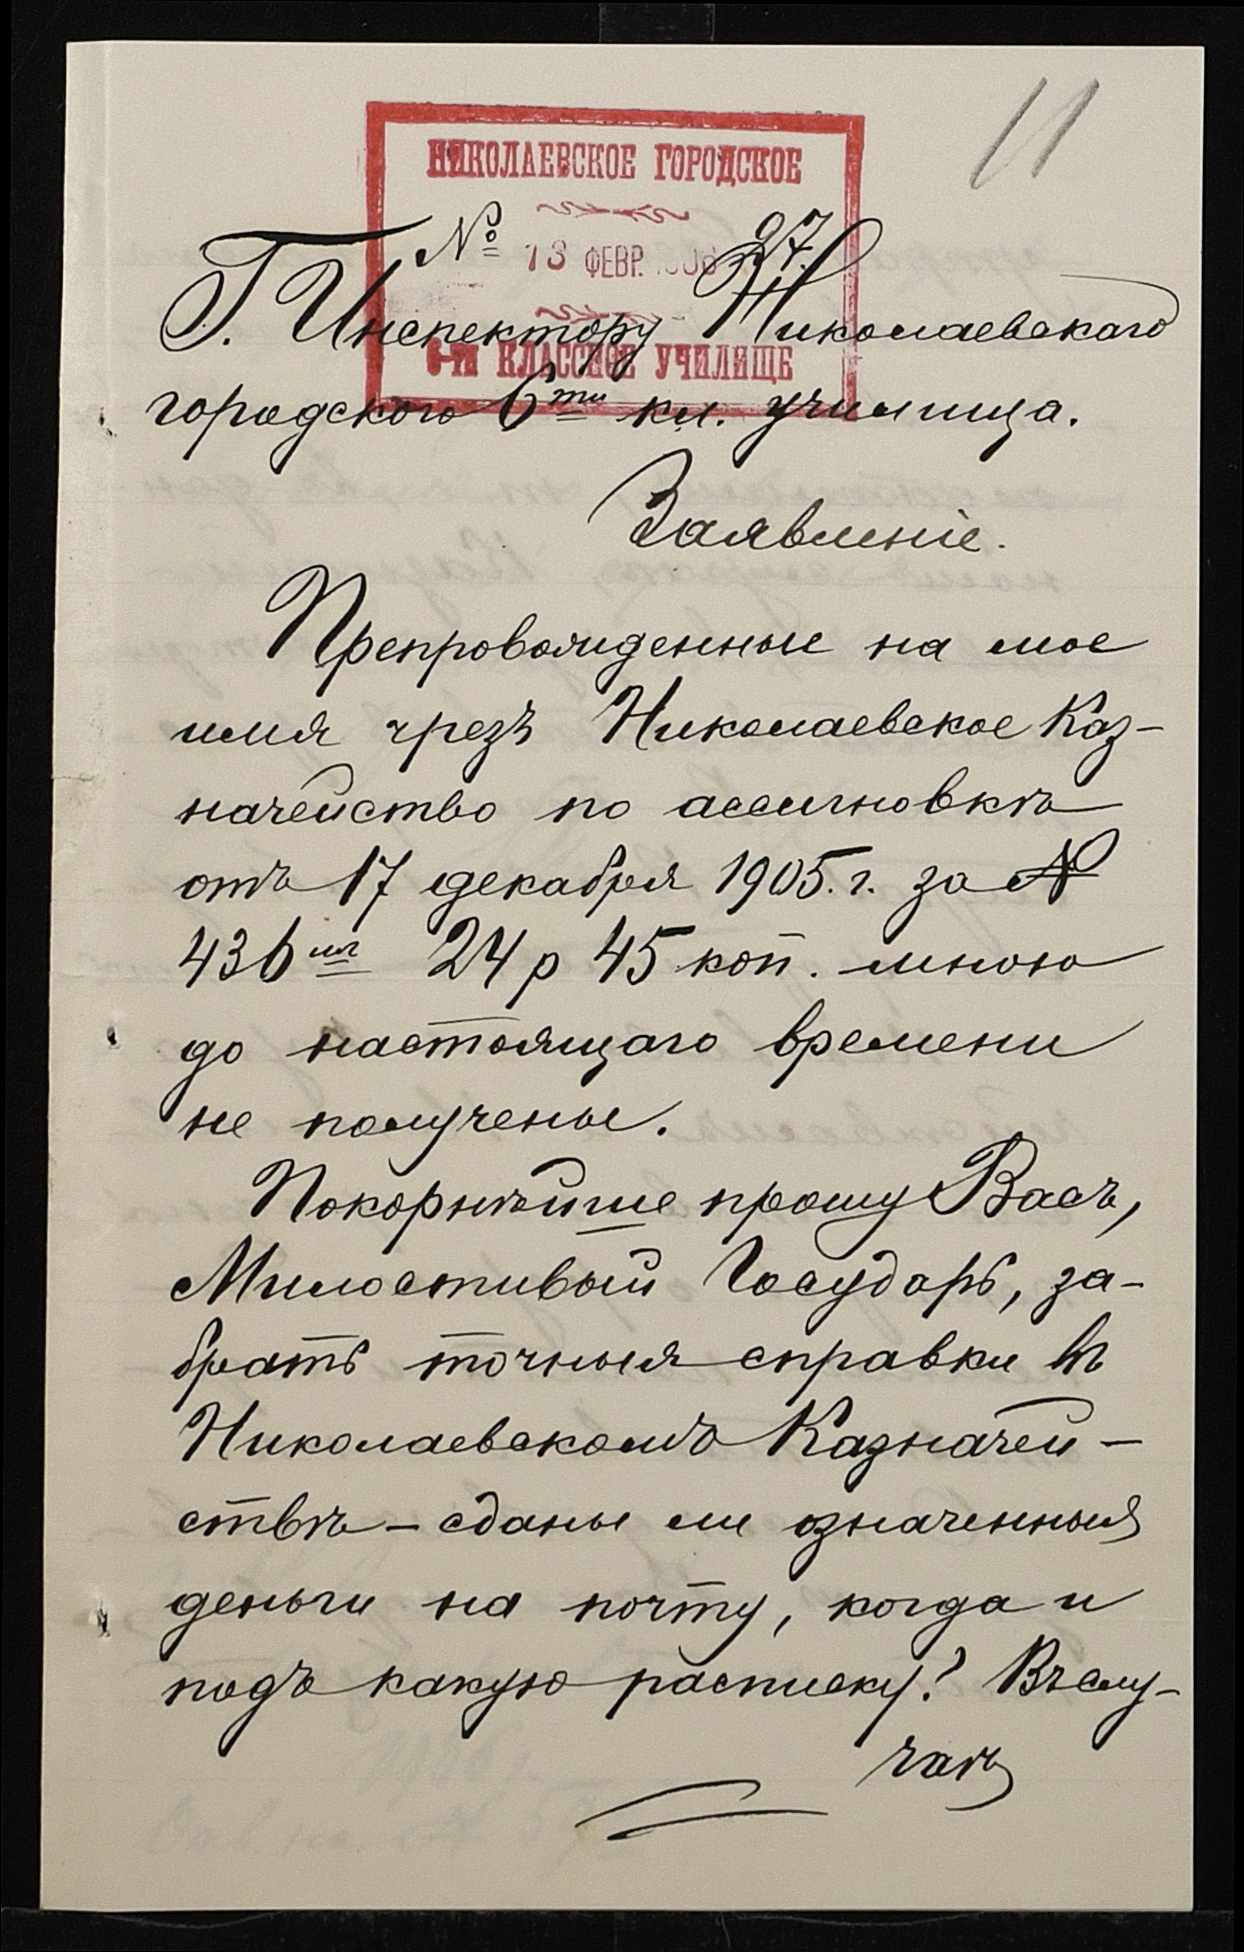 11
НИКОЛАЕВСКОЕ ГОРОДСКОЕ
№ 13 ФЕВР. 1906 27.
Г. Инспектору Николаевскаго
6-ти КЛАССНОЕ УЧИЛИЩЕ
городского 6ти кл. училища.
Заявленіе.
Препровожденные на мое
имя чрезъ Николаевское Каз-
начейство по ассигновкѣ
отъ 17 декабря 1905 г. за №
436мъ 24 р 45 коп. мною
до настоящаго времени
не получены.
Покорнѣйше прошу Васъ,
Милостивый Государь, за-
брать точныя справки въ
Николаевскомъ Казначей-
ствѣ - сданы ли означенныя
деньги на почту, когда и
подъ какую расписку? Въ слу-
чаѣ